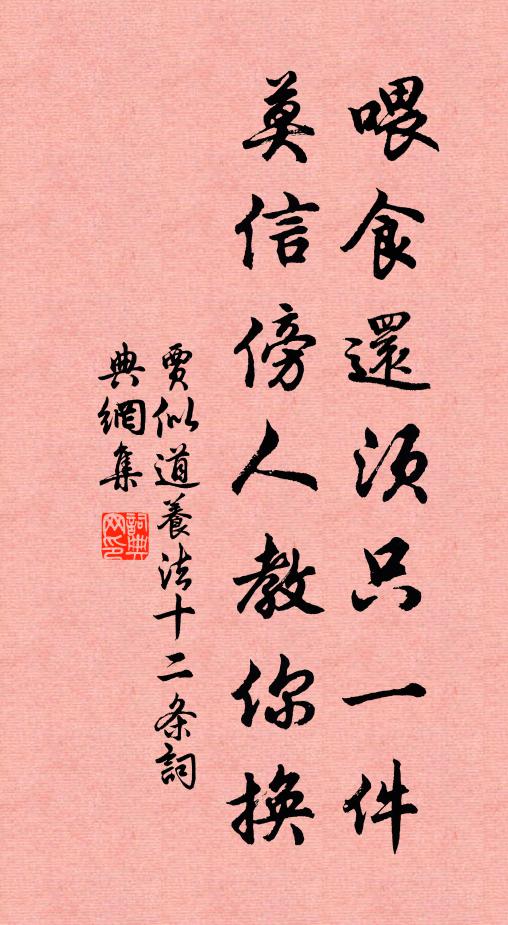 喂食還須只一件
莫信傍人教你換
賈似道養法十二条詞
典網集
詞典
网印